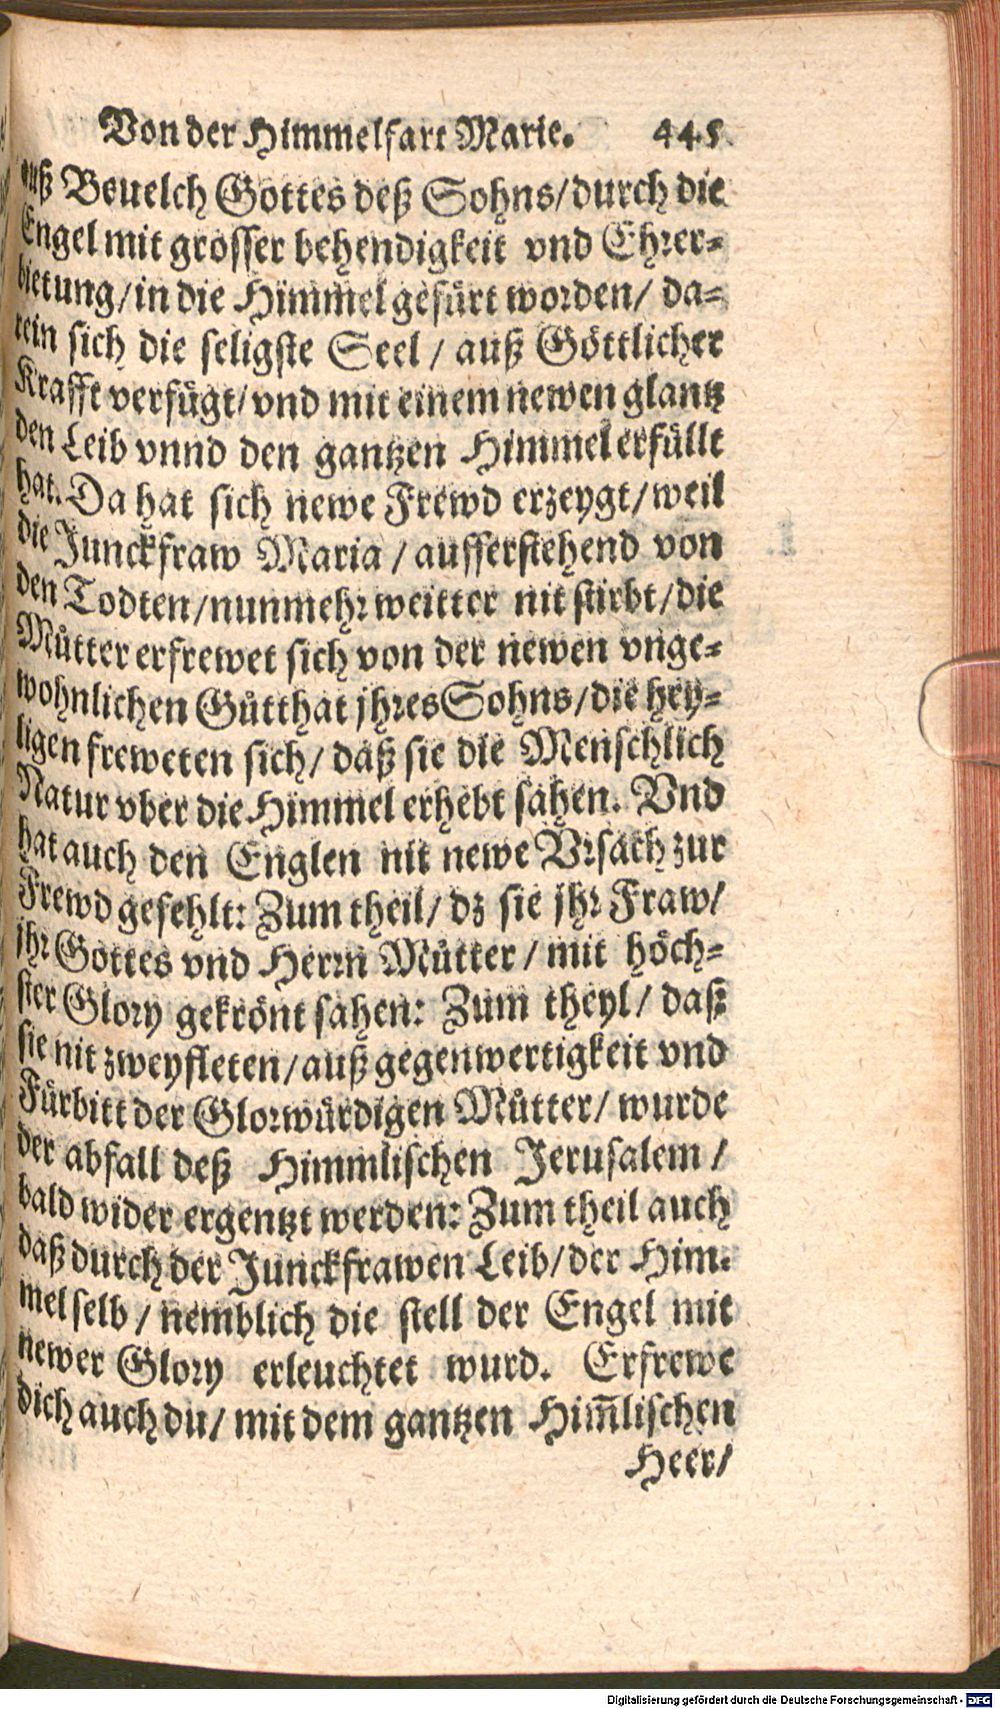 Von der Himmelfart Marie. 445.
auß Beuelch Gottes deß Sohns/durch die
Engel mit grosser behendigkeit vnd Ehrer-
bietung/in die Himmel gefürt worden/ da-
rein sich die seligste Seel / auß Göttlicher
Krafft verfügt/vnd mit einem newen glantz
den Leib vnnd den gantzen Himmel erfüllt
hat. Da hat sich newe Frewd erzeygt/weil
die Junckfraw Maria / aufferstehend von
den Todten/nunmehr weitter nit stirbt/die
Můtter erfrewet sich von der newen vnge-
wohnlichen Gůtthat jhres Sohns/die hey-
ligen freweten sich/ daß sie die Menschlich
Natur vber die Himmel erhebt sahen. Vnd
hat auch den Englen nit newe Vrsach zur
Frewd gefehlt: Zum theil/ dz sie jhr Fraw/
jhr Gottes vnd Herrn Můtter / mit höch-
ster Glory gekrönt sahen: Zum theyl/ daß
sie nit zweyfleten/auß gegenwertigkeit vnd
Fürbitt der Glorwürdigen Můtter/ wurde
der abfall deß Himmlischen Jerusalem /
bald wider ergentzt werden: Zum theil auch
daß durch der Junckfrawen Leib/der Him-
mel selb / nemblich die stell der Engel mit
newer Glory erleuchtet wurd. Erfrewe
dich auch du/ mit dem gantzen Him̃lischen
Heer/
Digitalisierung gefördert durch die Deutsche Forschungsgemeinschaft - DFG